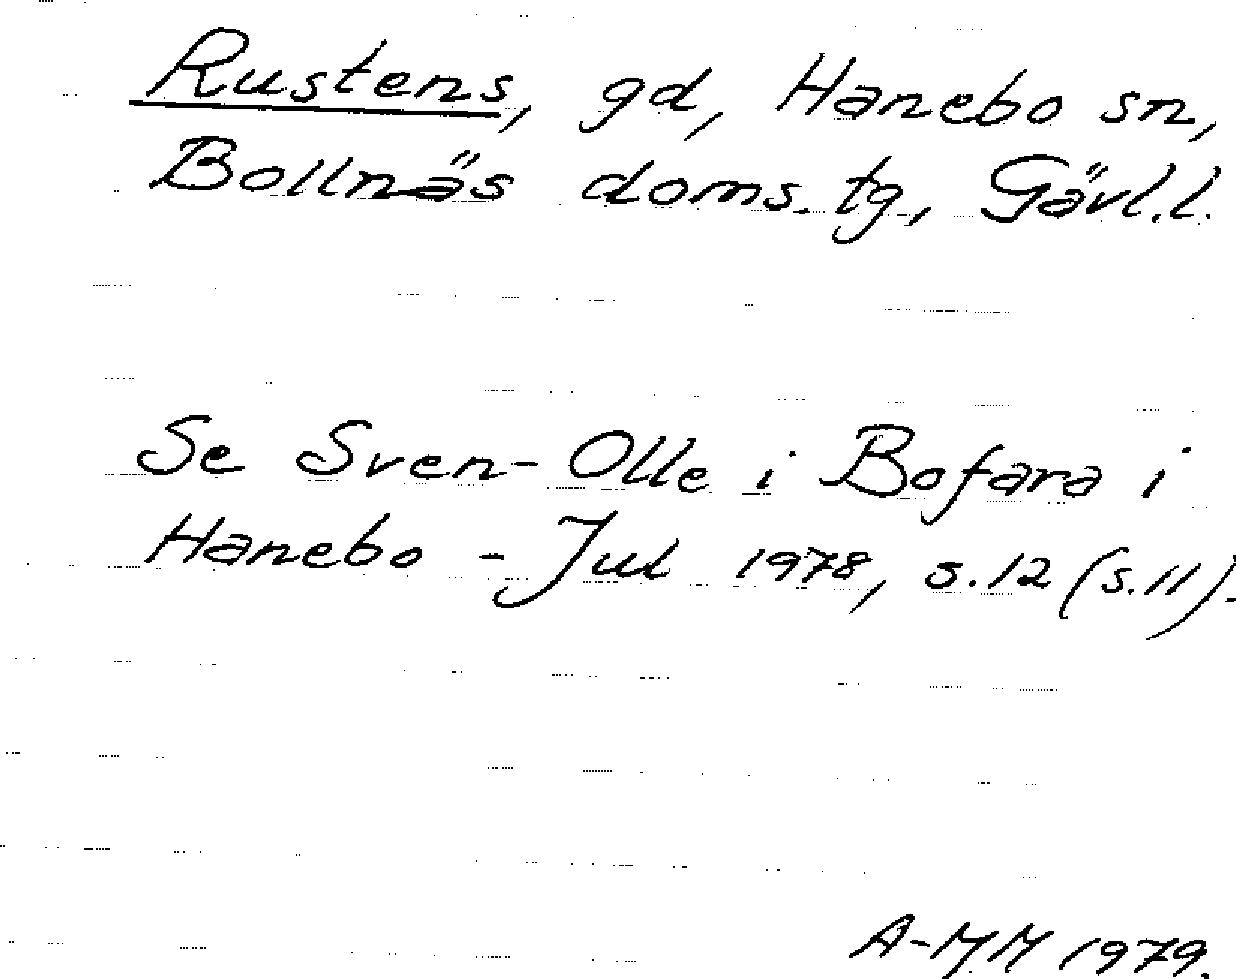 Rustens, gd, Hanebo sn,
Bollnäs doms. tg, Gävl.l.
Se Sven-Olle i Bofara i
Hanebo - Jul 1978, s.12 (s.11).
A-MM 1979.